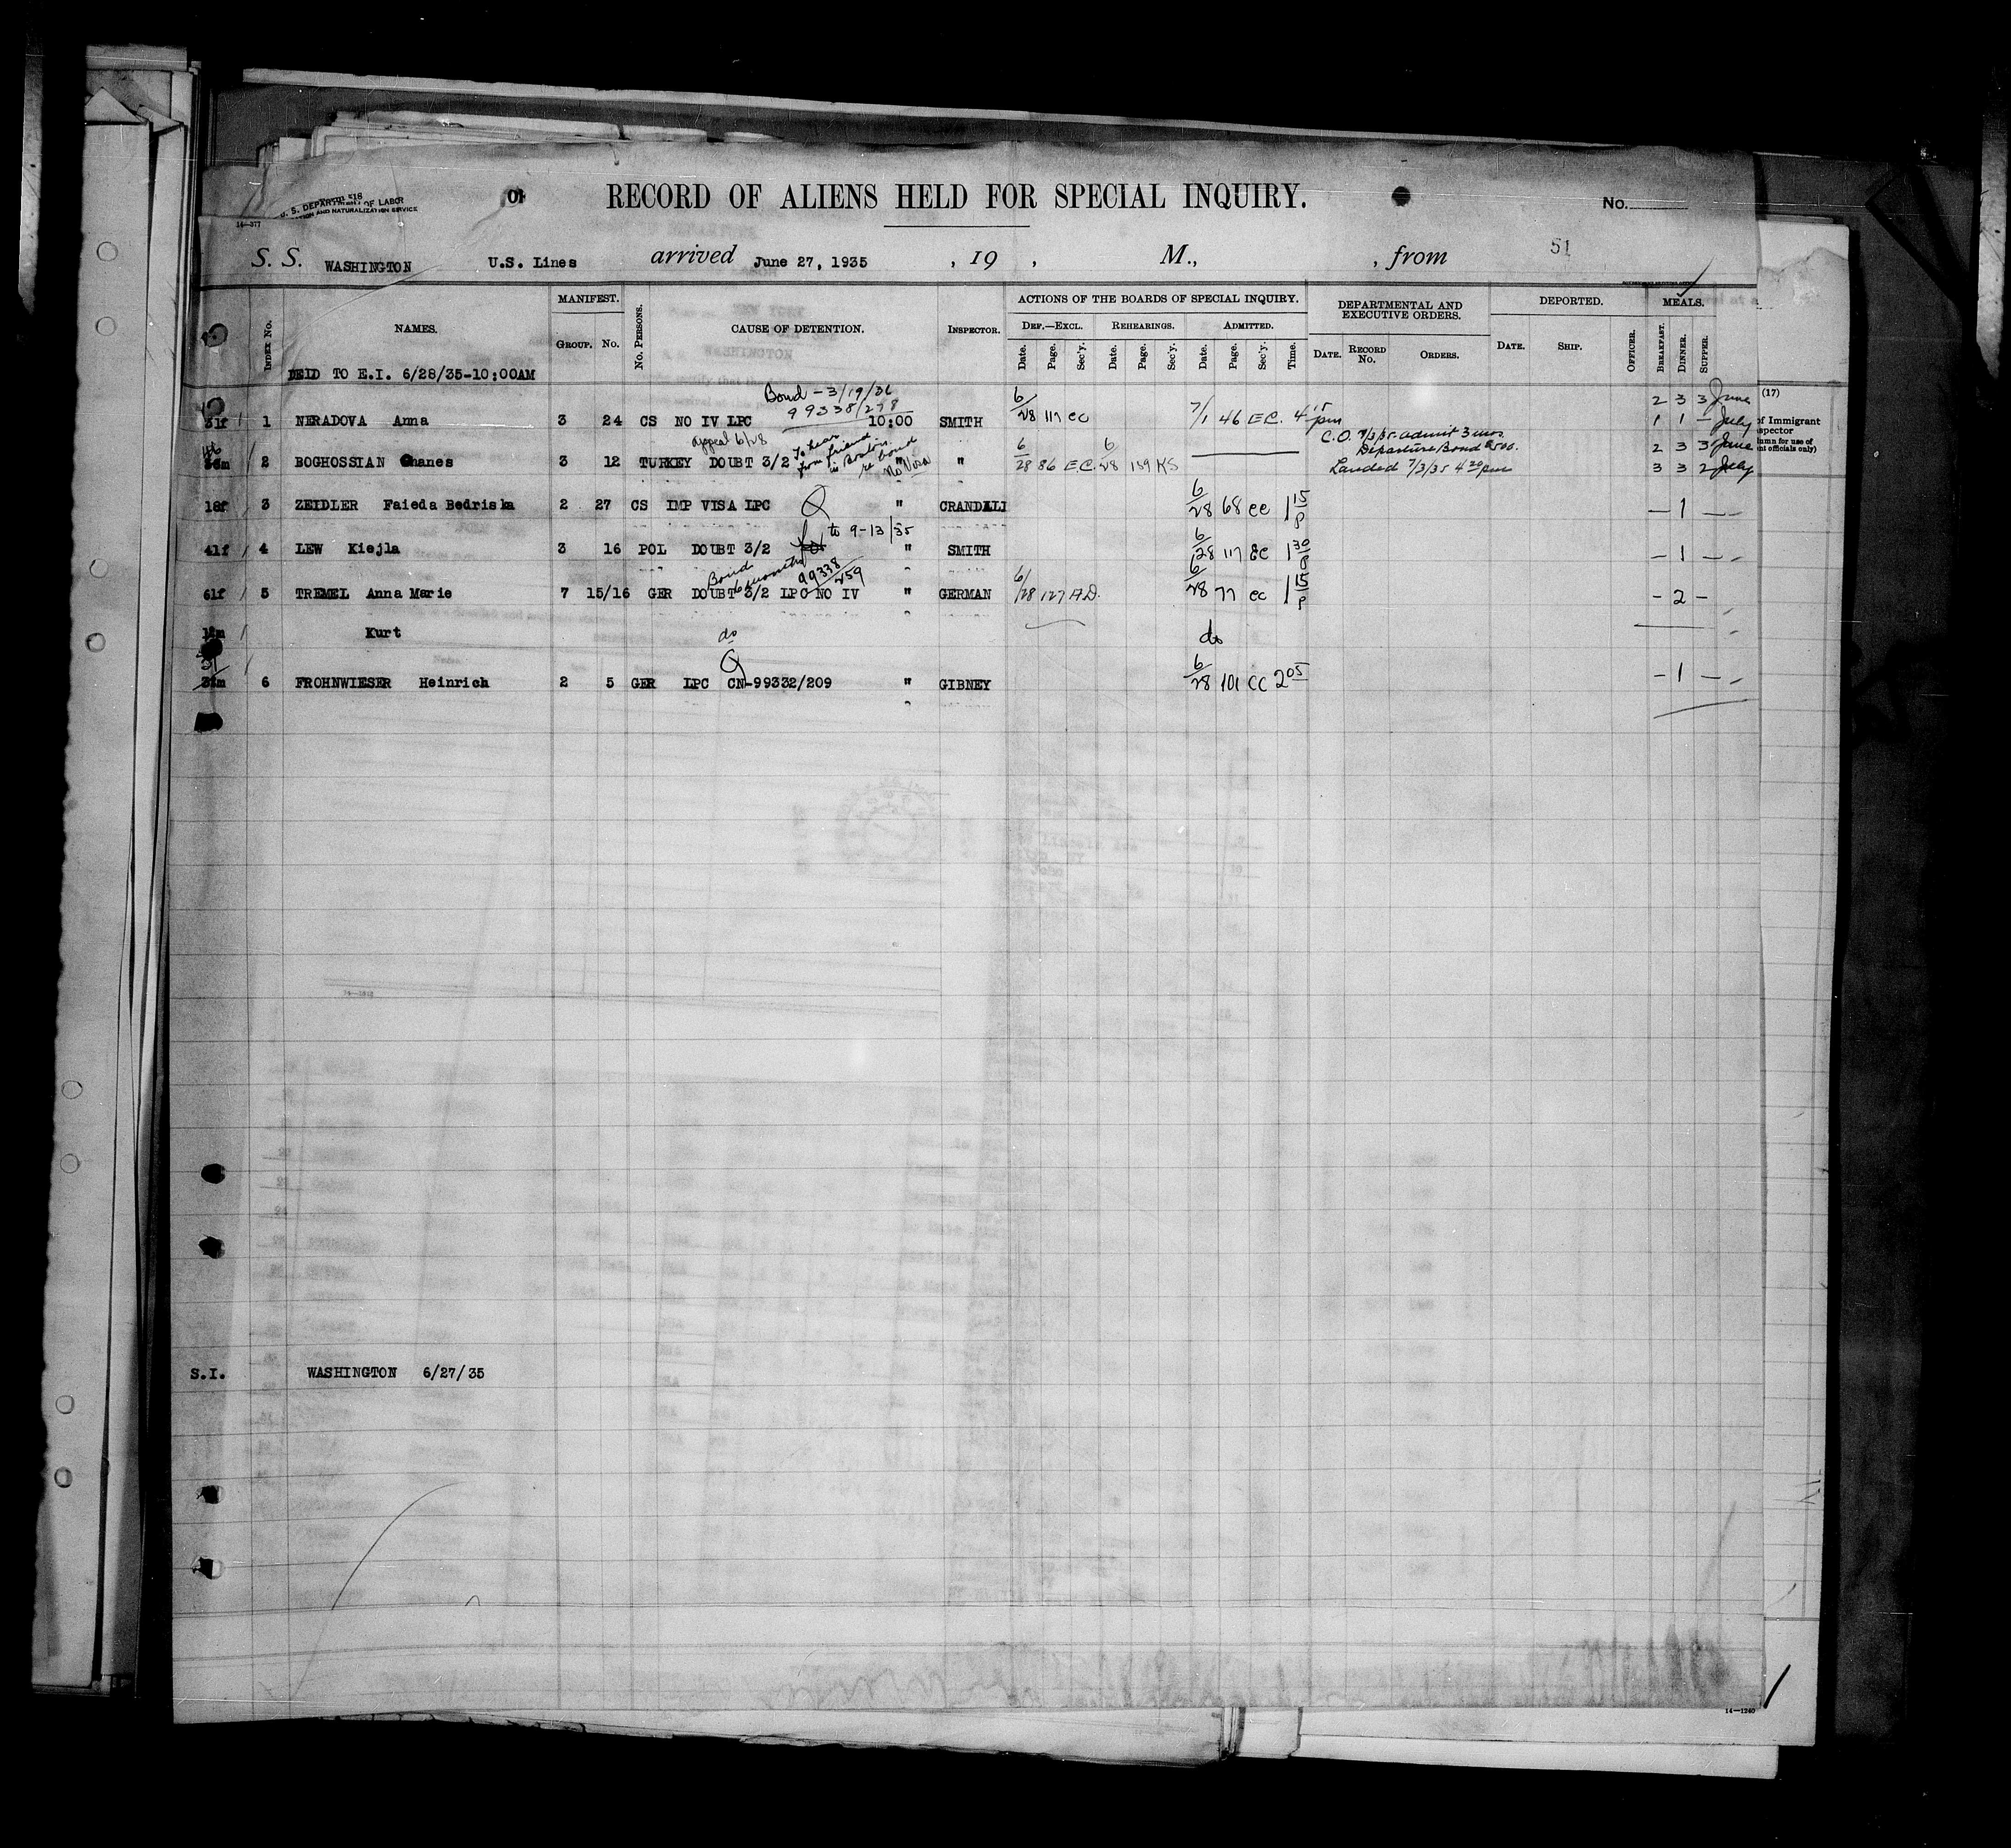 RECORD OF ALIENS HELD FOR SPECIAL INQUIRY.
No.
14—377
51
S. S. WASHINGTON U.S. Lines arrived June 27, 1935 , 19 , M., , from
INDEX No. NAMES. MANIFEST. GROUP. No. No. PERSONS. CAUSE OF DETENTION. INSPECTOR. ACTIONS OF THE BOARDS OF SPECIAL INQUIRY. DEPARTMENTAL AND EXECUTIVE ORDERS. DEPORTED. MEALS.
DEF.—EXCL. REHEARINGS. ADMITTED.
Date. Page. Sec'y. Date. Page. Sec'y. Date. Page. Sec'y. Time. DATE. RECORD No. ORDERS. DATE. SHIP. OFFICER. BREAKFAST. DINNER. SUPPER.
DEID TO E.I. 6/28/35-10:00AM
Bond - 3/19/36
99338/278
31f 1 NERADOVA Anna 3 24 CS NO IV LPC 10:00 SMITH 6/28 117 EC 7/1 46 EC. 4 15 pm 2 3 3 June
1 1 - July
(17)
of Immigrant
spector
umn for use of
nt officials only)
appeal 6/28
To hear from friend in Boston re bond
No Visa
C.O. 7/3/35. admit 3 mos.
Departure Bond $500.
Landed 7/3/35 4 30 pm
2 BOGHOSSIAN Ohanes 3 12 TURKEY DOUBT 3/2 " " 6/28 86 E.C. 6/28 159 KS 2 3 3 June
3 3 2 July
18f 3 ZEIDLER Faieda Bedriska 2 27 CS IMP VISA LPC Q " CRANDALL 6/28 68 ec 1 15 p — 1 —
to 9-13/35
41f 4 LEW Kiejla 3 16 POL DOUBT 3/2 " SMITH 6/28 117 EC 1 30 p — 1 —
Bond 6 months 99338/259
61f 5 TREMEL Anna Marie 7 15/16 GER DOUBT 3/2 LPC NO IV " GERMAN 6/28 127 A.D. 6/28 77 ec 1 15 p - 2 -
Kurt do do
Q
31
6 FROHNWIESER Heinrich 2 5 GER LPC CN-99332/209 " GIBNEY 6/28 101 CC 2 05 - 1 —
S.I. WASHINGTON 6/27/35
14—1240